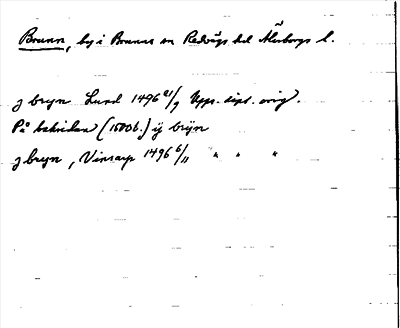 Brunn, by i Brunns sn Redvägs hd Älvsborgs l.
j bryn Lund 1496 21/9 Upps. dipl. orig.
På baksidan (1500 t.) ij brijn
j bryn, Vinsarp 1496 6/11 " " "